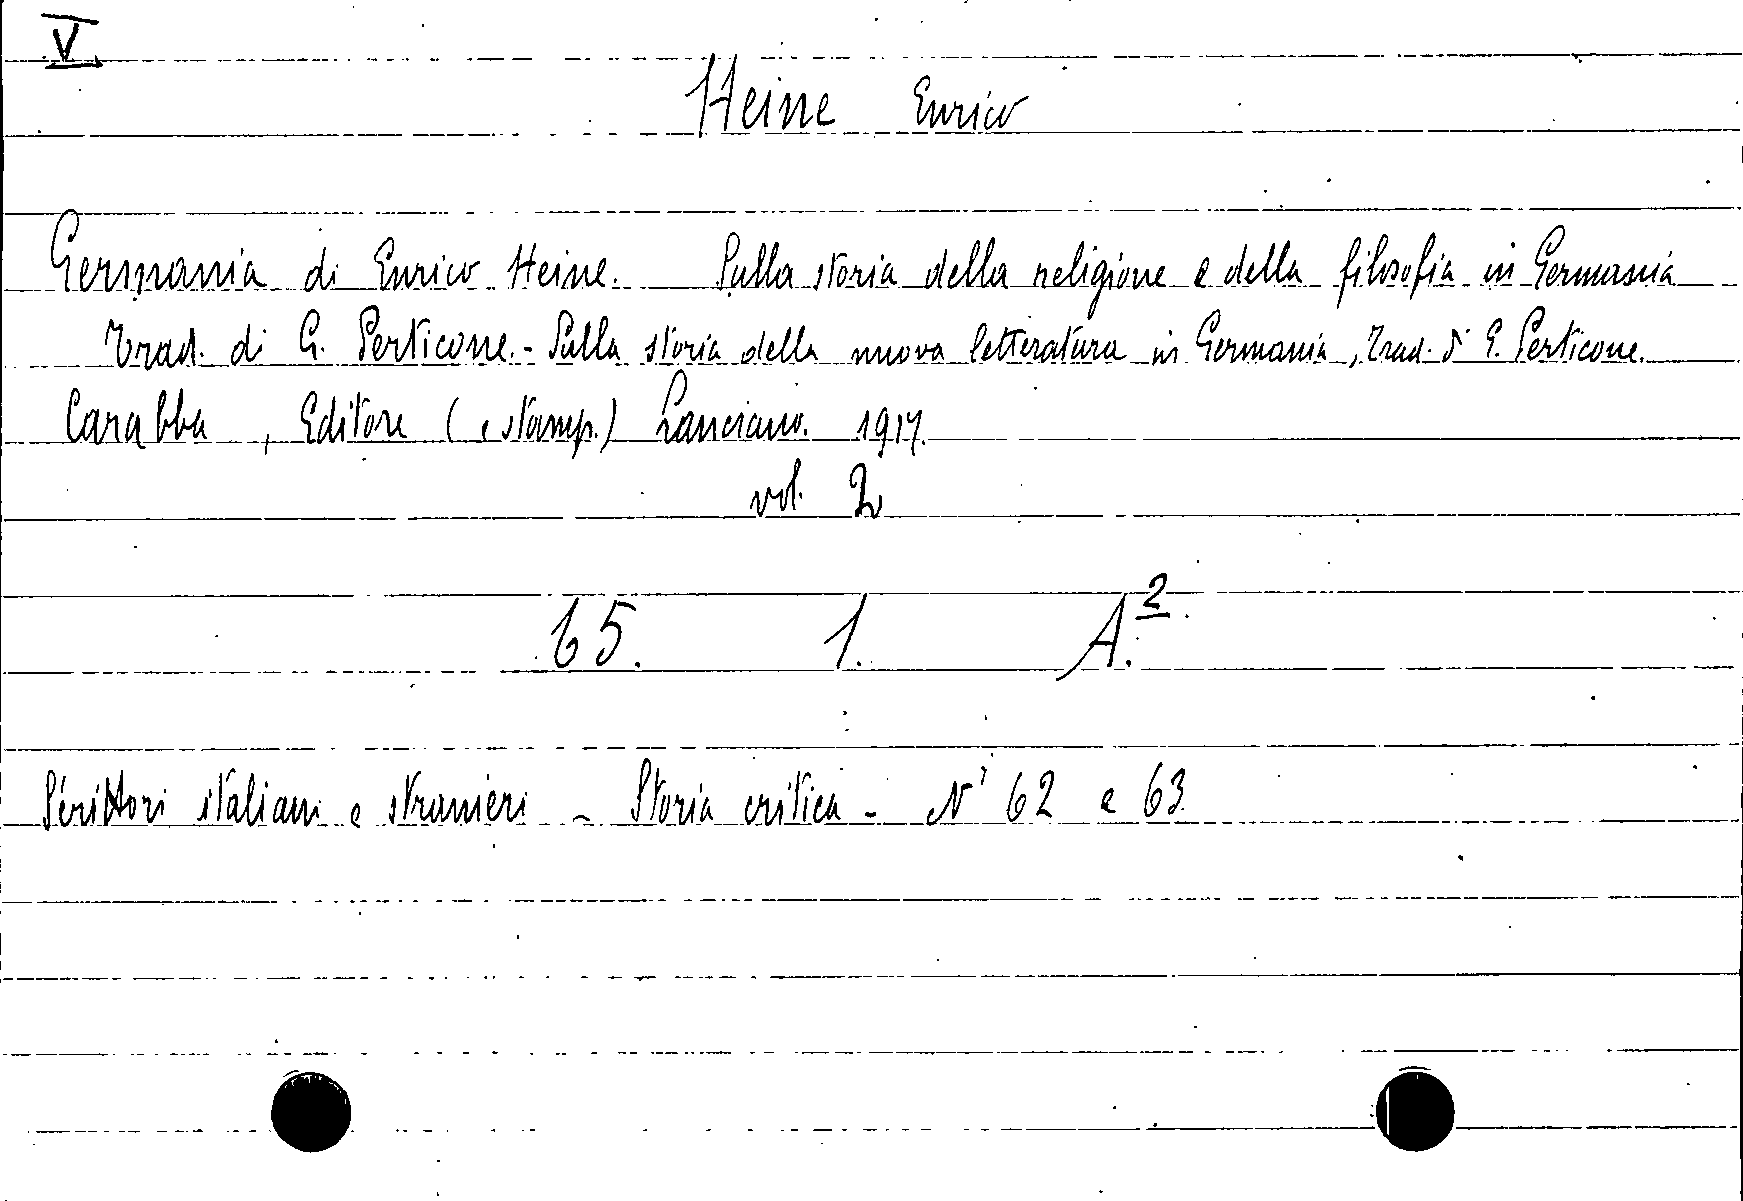 V
Heine Enrico
Germania di Enrico Heine. Sulla storia della religione e della filosofia in Germania
Trad. di G. Perticone. - Sulla storia della nuova letteratura in Germania, Trad. di G. Perticone.
Carabba, Editore (e stamp.) Lanciano. 1917.
vol. 2
65. 1. A.2
Scrittori italiani e stranieri - Storia critica - Ni 62 e 63